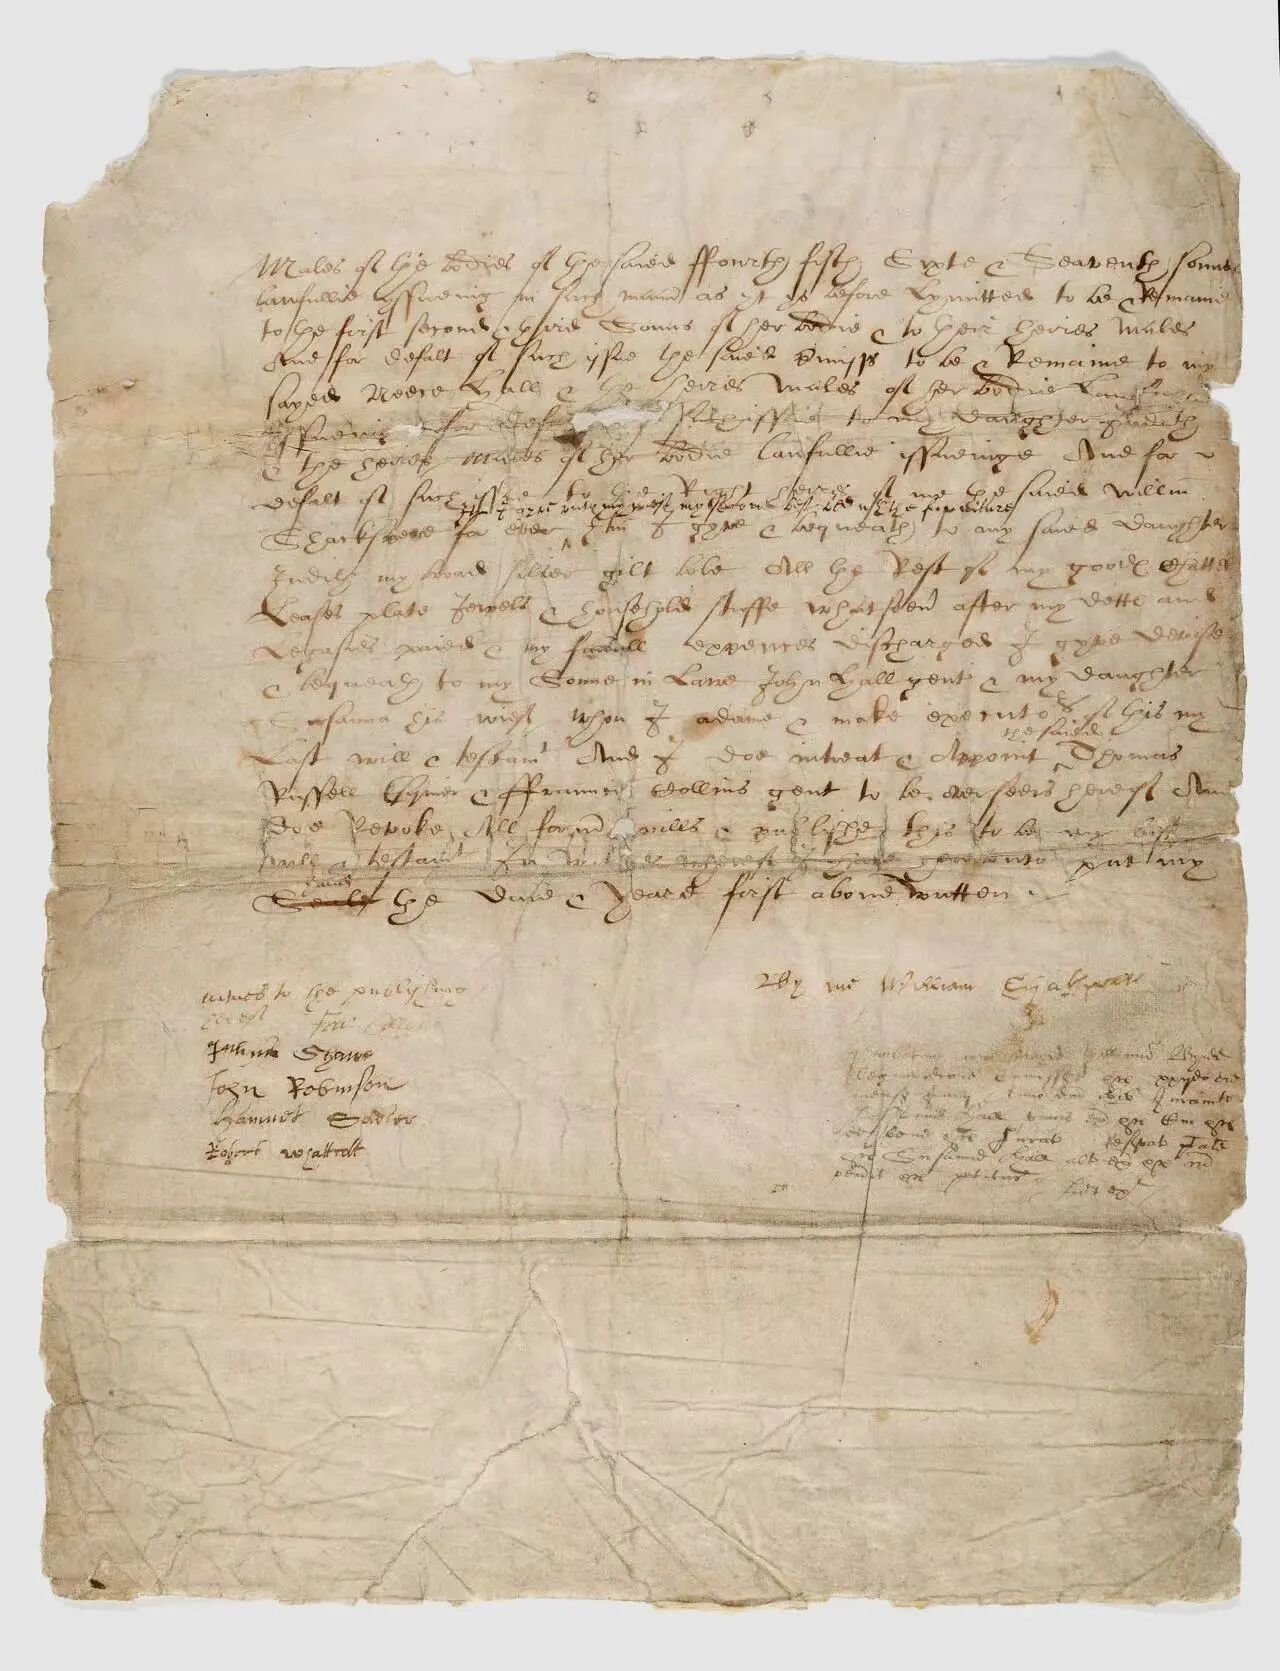 Males of the bodies of the saied ffourth fifth Sixte & Seaventh sonnes
lawfullie yssueing in such mann as yt ys before Lymitted to be & Remaine
to the first second & third Sonns of her bodie & to their heires Males
And for defalt of such issue the saied p'misss to be & Remaine to my
sayed Neece Hall & the heires Males of her bodie Lawfully
yssueing for defa of such issue to my daughter Judith
& the heires Males of her bodie lawfullie issueinge And for
defalt of such issue to the Right heires of me the saied Willm
Itm I gyve unto my wief my second best bed wth the furniture
Shackspere for ever Itm I gyve & bequeath to my saied daughter
Judith my broad silver gilt bole All the Rest of my goods Chattels
Leases plate Jewels & household stuffe whatsoev after my detts and
Legasies paied & my fun'all expences discharged I gyve devise
& bequeath to my Sonne in Lawe John Hall gent & my daughter
Susanna his wief whom I ordaine & make executors of this my
the saied
Last will & testamt And I doe intreat & Appoint Thomas
Russell Esquier & ffrauncis Collins gent to be overseers hereof And
doe Revoke All form wills & publishe this to be my last
will & testamt In witnes whereof I have hereunto put my
hand
Seale the daie & Yeare first above written
witnes to the publishing
hereof Fra: Collyns
By me William Shakspeare
Julyus Shawe
John Robinson
Hamnet Sadler
Robert Whattcott